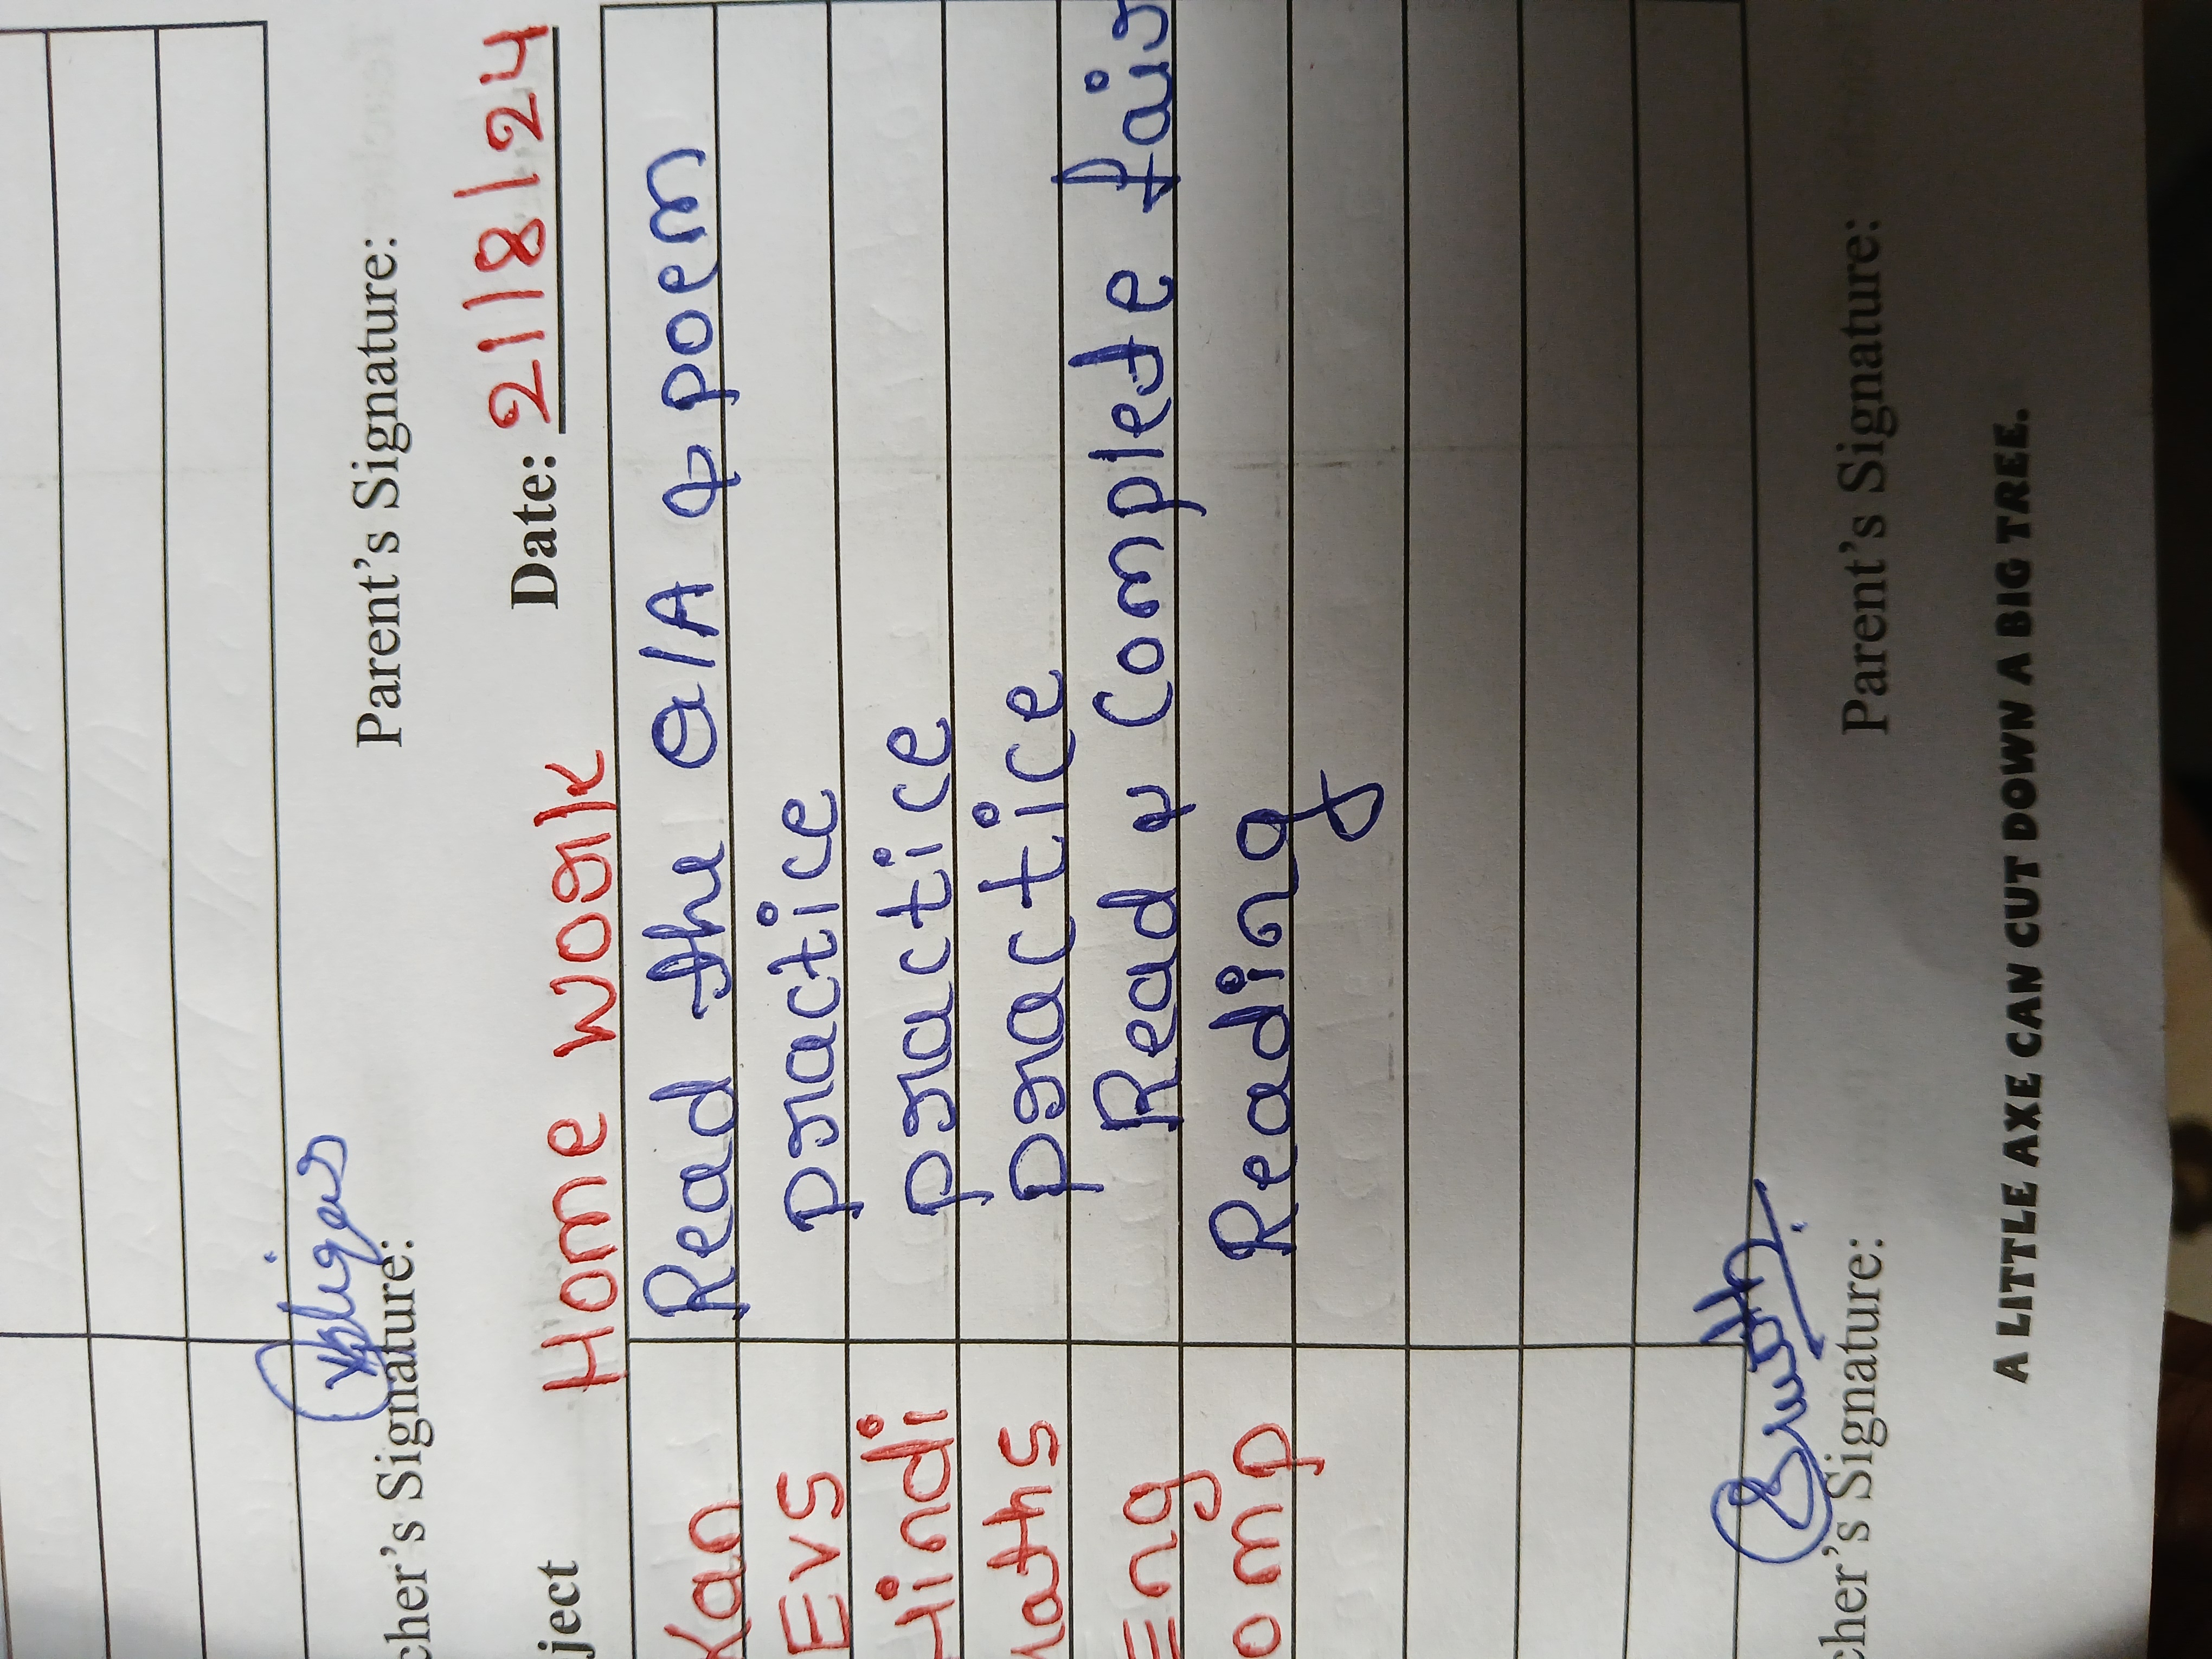 Parent's Signature:
cher's Signature:
ject Home work Date: 21/8/24
Kan Read the Q/A & poem
EVS practice
Hindi practice
aths practice
Eng Read & Complete fair
omp Reading
cher's Signature: Parent's Signature:
A LITTLE AXE CAN CUT DOWN A BIG TREE.